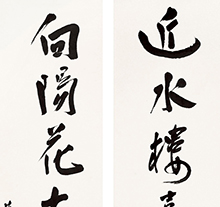 近水樓
向陽花